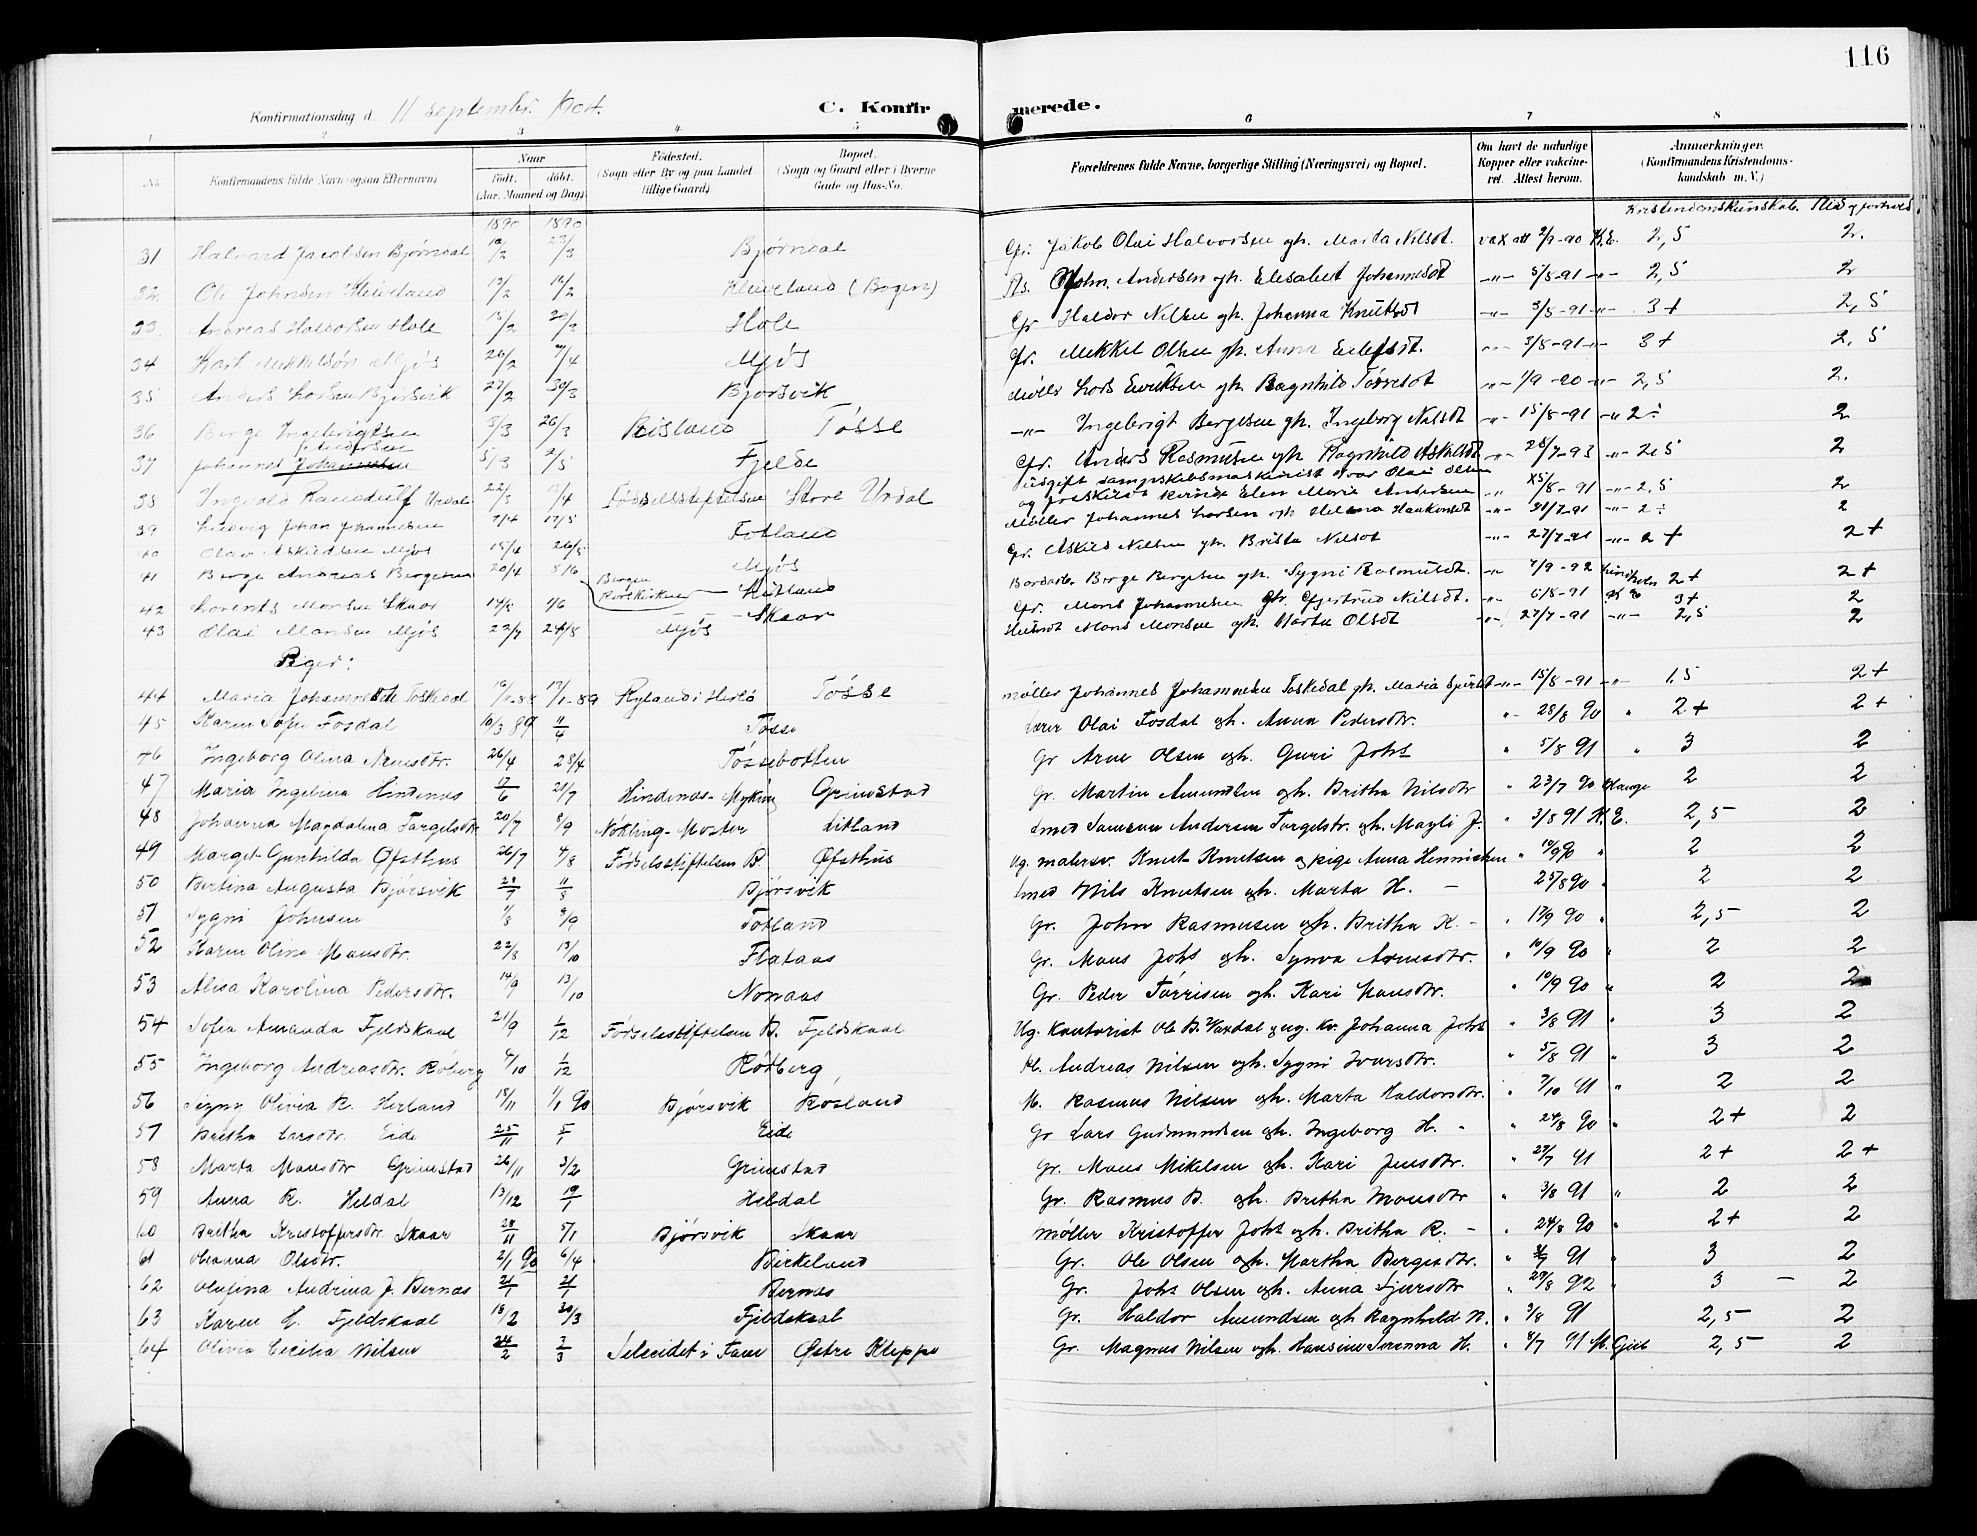 116
Konfirmationsdag d. 11 septembr. 1904.
C. Konfirmerede.
1 2 3 4 5 6 7 8
No. Konfirmandens fulde Navn (ogsaa Efternavn). Naar født. døbt. (Aar, Maaned og Dag). Fødested. (Sogn eller By og paa Landet tillige Gaard). Bopæl. (Sogn og Gaard eller i Byerne Gade og Hus-No. Forældrenes fulde Navne, borgerlige Stilling (Næringsvei) og Bopæl. Om havt de naturlige Kopper eller vakcineret. Attest herom. Anmerkninger. (Konfirmandens Kristendomskundskab m. V.)
1890 1890 Kristendomskunskab. Flid og forhold.
31 Halvard Jacobsen Bjørndal 23/3 Bjørndal Gr. Jakob Olai Halvorsen gh. Marta Nilsdt. vax att 2/9-90 K.E. 2,5 2.
32 Ole Johnsen Kleiveland 13/2 16/2 Kleiveland (Bogen) Pls. John Andersen gh. Elisabet Johannesdt -"- 5/8-91 -"- 2,5 2
33 Andreas Haldorsen Hole 15/2 Hole Gr Haldor Nilsen gh. Johanna Knutsdt -"- 3/8-91 -"- 3+ 2,5
34 Karl Mikkelsøn Mjøs 26/2 7/4 Mjøs Gr. Mikkel Olsen gh. Anna Eilefsdt. -"- 3/8-91 -"- 3+ 2,5
35 Anders Larsen Bjørsvik 27/2 30/3 Bjørsvik Møller Lars Eriksen gh. Ragnhild Tørresdt -"- 1/9-90 -"- 2,5 2.
36 Berge Ingebrigtsen 3/3 26/3 Risland Tøsse -"- Ingebrigt Bergesen gh. Ingeborg Nilsdt -"- 15/8-91 -"- 2÷ 2
37 Johannes Johannesen Andersen 5/3 2/5 Fjelde Gr. Anders Rasmusen gh Ragnhild Askildt -"- 28/7-93 -"- 2,5 2
38 Ingvald Randulf Urdal 22/3 13/4 Fødselsstiftelsen Store Urdal Udgift dampskibsmaskinist Ivar Olai Olsen
og fraskildt kvinde Elen Marie Andersen " 15/8-91 -"- 2,5 2
39 Ludvig Johan Johannesen 7/4 17/5 Totland Møller Johannes Larsen gh Helena Haakonsdt -"- 31/7-91 -"- 2÷ 2
40 Olav Askildsen Mjøs 15/4 26/5 Mjøs Gr. Askild Nilsen gh. Brita Nilsdt -"- 27/7-91 -"- 2+ 2+
41 Berge Andreas Bergesen 20/4 5/6 Bergen Korskirken Hitland Berge Bergesen gh. Sygni Rasmusdt. -"- 7/9-92 2+ 2+
42 Lorents Monsen Skaar 14/5 1/6 Skaar Gr. Mons Johannesen gh. Gjertrud Nilsdt. -"- 6/8-91 K E 3+ 2
43 Olai Monsen Mjøs 22/7 24/8 Mjøs Mons Monsen gh. Marta Olsdt -"- 27/7-91 -"- 2,5 2
Piger:
44 Maria Johannesdt Toskedal Ryland i Herlø Tøsse Møller Johannes Johannesen Toskedal gh. Maria -"- 15/8-91 -"- 1,5 2+
45 Karen Sofie Fosdal 10/3 89 11/4 Tøsse Lærer Olai Fosdal gh. Anna Pedersdtr. " 28/8 90 " 2+ 2+
46 Ingeborg Olina Arnesdtr. 26/4 28/4 Tøssebotten Gr Arne Olsen gh. Guri Johs " 5/8 91 " 3 2
47 Maria Ingelina Hindenes 17/6 21/7 Hindenæs-Myking Grimstad Gr. Martin Amundsen gh. Britha Nilsdtr " 23/7 90 Hauge 2 2
48 Johanna Magdalina Torgilsdtr 20/7 8/9 Nøkling-Moster Litland Smed Samson Andersen Torgelstr. gh. Magli J. " 3/8 91 K. E. 2,5 2
49 Marget Gunhilda Øfsthus 26/7 4/8 Fødselsstiftelsen B. Øfsthus Ug. malersv. Knut Knutsen og pige Anna Henriksen " 10/9 90 " 2 2
50 Bertina Augusta Bjørsvik 28/7 11/8 Bjørsvik Smed Nils Knutsen gh. Marta H. - 25/8 90 " 2 2
51 Sygni Johnsen 1/8 8/9 Totland Gr. John Rasmusen gh. Britha K. - " 17/9 90 " 2,5 2
52 Karen Olina Monsdtr. 22/8 13/10 Flataas Gr. Mons Johs gh. Synva Arnesdtr. " 10/9 90 " 2 2
53 Alisa Karolina Pedersdtr. 14/9 13/10 Nonaas Gr. Peder Tørrisen gh. Kari Monsdtr. " 10/9 90 " 2 2
54 Sofia Amanda Fjeldskaal 21/9 1/12 Fødselsstiftelsen B. Fjeldskaal Ug. Kontorist Ole B. Vaxdal og ug. kv. Johanna Johs " 3/8 91 " 3 2
55 Ingeborg Andreasdtr. Røberg 4/10 1/12 Rødberg Pl. Andreas Nilsen gh. Sygni Ivarsdtr. " 5/8 91 " 3 2
56 Signy Olivia R. Herland 18/11 1/1 90 Bjørsvik Rosland M. Rasmus Nilsen gh. Marta Haldorsdtr. " 7/10 91 " 2 2
57 Britha Larsdtr. Eide 25/11 5/1 Eide Gr Lars Gudmundsen gh. Ingeborg H. - " 24/8 90 " 2+ 2
58 Marta Monsdtr Grimstad 26/11 3/2 Grimstad Gr. Mons Mikelsen gh. Kari Jensdtr. " 29/7 91 2+ 2+
59 Anna R. Heldal 13/12 19/1 Heldal Gr. Rasmus B. gh. Britha Monsdtr " 3/8 91 " 2 2
60 Britha Kristoffersdtr. Skaar 28/11 5/1 Bjørsvik Skaar Møller Kristoffer Johs gh. Britha R. - " 24/8 90 " 2+ 2
61 Oleanna Olsdtr. 2/1 90 6/4 Birkeland Gr. Ole Olsen gh. Martha Bergesdtr. " 91 " 3 2
62 Olufina Andrina J. Bernæs 21/1 21/1 Bernæs Gr. Johs Olsen gh. Anna Sjursdtr " 29/8 92 " 3 - 2
63 Karen H. Fjeldskaal 18/2 30/3 Fjeldskaal Gr. Haldor Amundsen gh Ragnhild N. " 3/8 91 2,5 2
64 Olivia Cecilia Nilsen 24/2 2/3 Seleeidet i Fane Østre Kleppe Gr. Magnus Nilsen gh. Hansine Serenna H. " 8/7 91 M. Gjeit 2,5 2